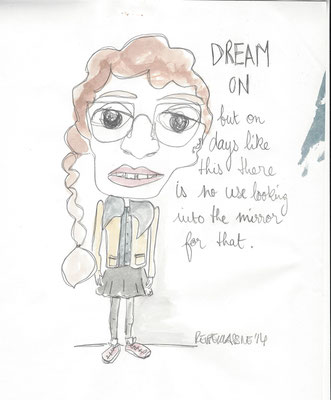 DREAM
ON
but on
days like
this there
is no use looking
into the mirror
for that.